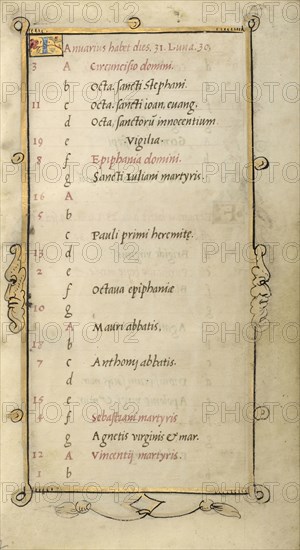 Ianuarius habet dies. 31. Luna. 30.
3 A Circuncisio domini.
b Octa. sancti Stephani.
11 c Octa. sancti ioan. euang.
d Octa. sanctorū innocentium
19 e Vigilia.
8 f Epiphania domini.
g Sancti Iuliani martyris.
16 A
5 b
c Pauli primi heremitę.
13 d
2 e
f Octaua epiphaniæ
10 g
A Mauri abbatis.
18 b
7 c Anthonij abbatis.
d
15 e
4 f Sebastiani martyris
g Agnetis virginis & mar.
12 A Vincentij martyris.
1 b